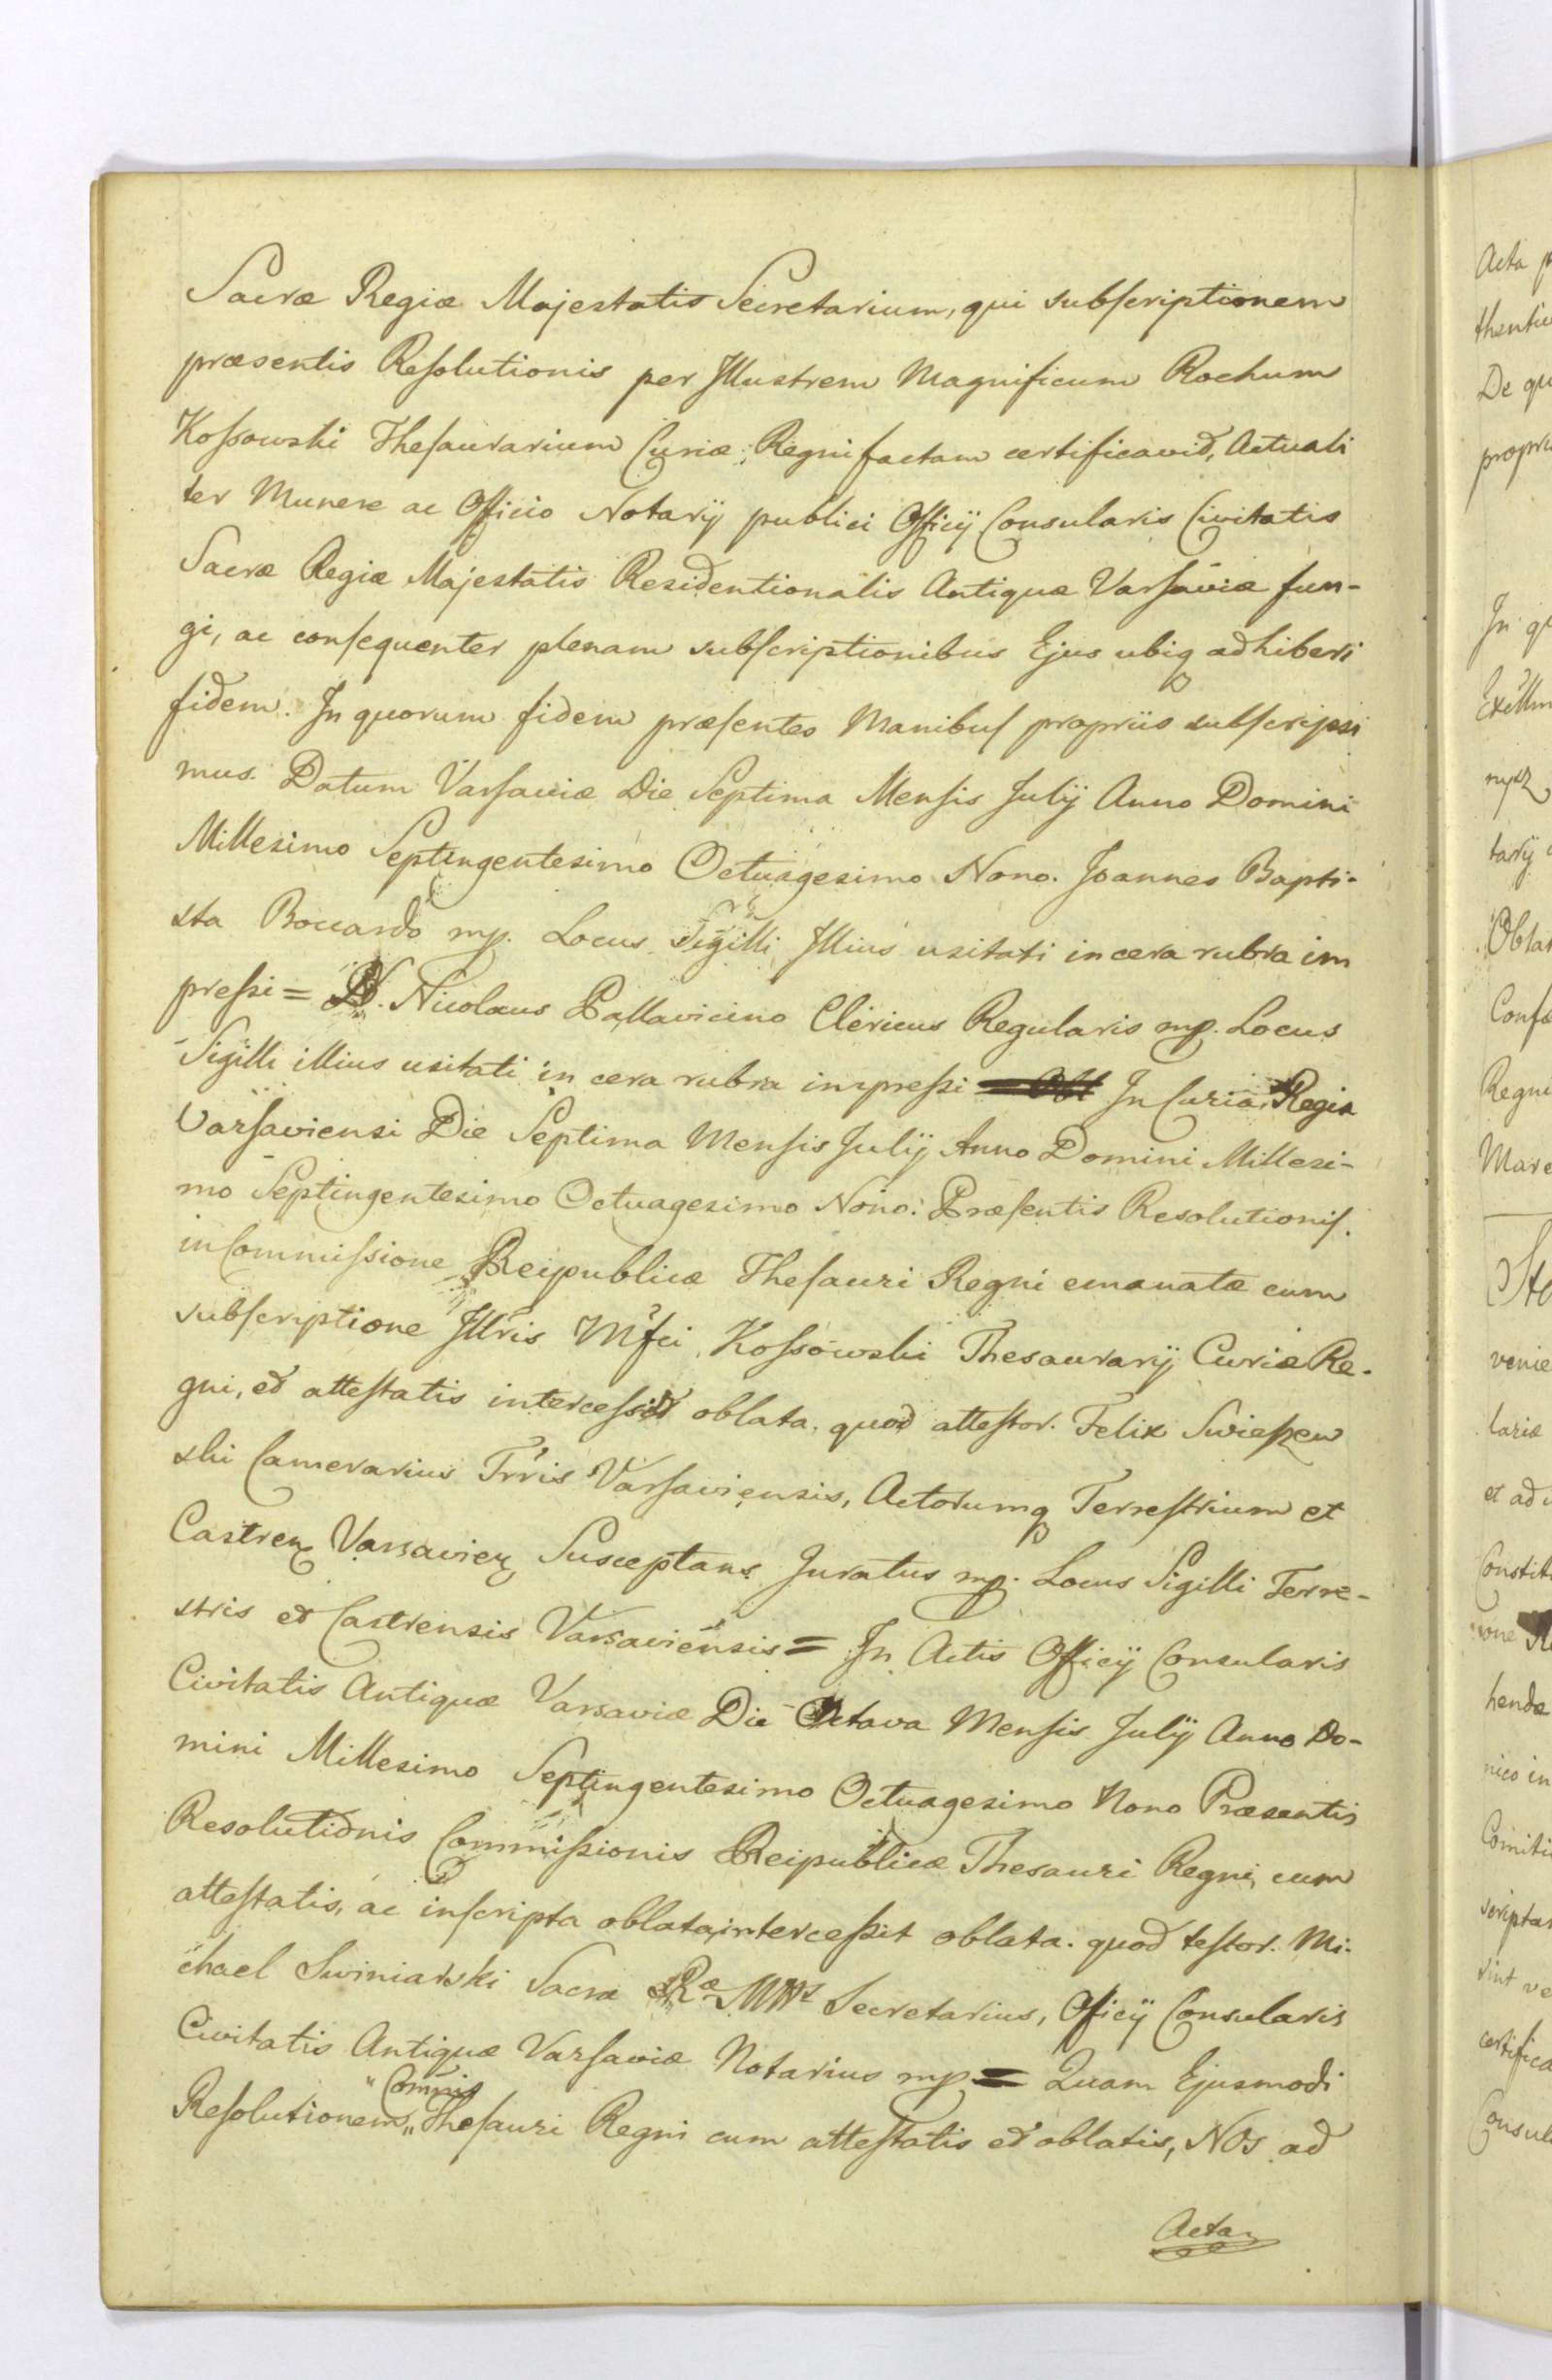 Sacræ Regiæ Majestatis Secretarium, qui subscriptionem
præsentis Resolutionis per Illustrem Magnificum Rochum
Kossowski Thesaurarium Curiæ Regni factam certificavit, Actuali
ter Munere ac Officio Notarij publici Officij Consularis Civitatis
Sacræ Regiæ Majestatis Residentionalis Antiquæ Varsaviæ fun-
gi, ac consequenter plenam subscriptionibus Ejus ubiq adhiberi
fidem. In quorum fidem præsentes Manibus propriis subscripsi
mus. Datum Varsaviæ Die Septima Mensis Julij Anno Domini
Millesimo Septingentesimo Octuagesimo Nono. Joannes Bapti-
sta Boccardo mp. Locus Sigilli Illius usitati in cera rubra im
pressi = D. Nicolaus Pallavicino Clericus Regularis mp. Locus
Sigilli illius usitati in cera rubra impressi = Obl In Curia Regia
Varsaviensi Die Septima Mensis Julij Anno Domini Millesi-
mo Septingentesimo Octuagesimo Nono. Præsentis Resolutionis.
in Commissione Reipublicæ Thesauri Regni emanatæ cum
subscriptione Illris Mfci Kossowski Thesaurarij Curiæ Re-
gni, et attestatis intercessit oblata, quod attestor. Felix Swieszew
ski Camerarius Trris Varsaviensis, Actorumq Terrestrium et
Castren Varsavien Susceptans Juratus mp. Locus Sigilli Terre-
stris et Castrensis Varsaviensis = In Actis Officij Consularis
Civitatis Antiquæ Varsaviæ Die Octava Mensis Julij Anno Do-
mini Millesimo Septingentesimo Octuagesimo Nono Præsentis
Resolutionis Commissionis Reipublicæ Thesauri Regni, cum
attestatis, ac inscripta oblata, intercessit oblata. quod testor. Mi-
chael Swiniarski Sacræ Ræ Mttis Secretarius, Officij Consularis
Civitatis Antiquæ Varsaviæ Notarius mp = Quam Ejusmodi
"Comnis
Resolutionem "Thesauri Regni cum attestatis et oblatis, NOS ad
Acta
Acta
De qu
In q
Obla
Regni
Mare
veniæ
lariæ
et ad
hendæ
nico in
sint ve